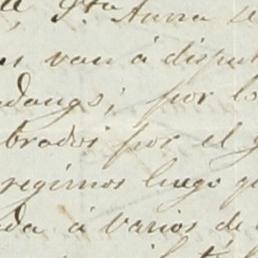 Sta Anna se
van á disput
dangs; por lo
brados por el g
regirnos luego q
da á varios de